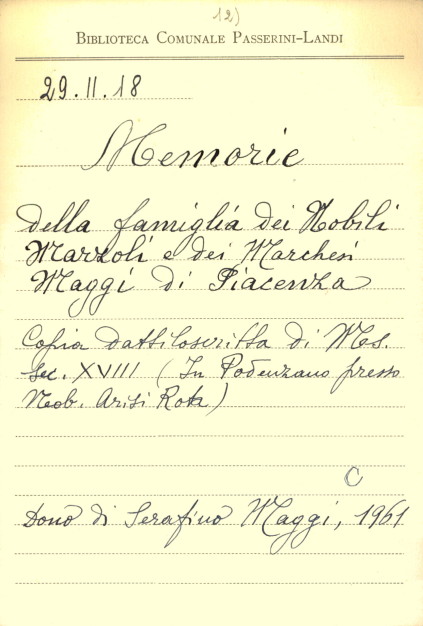 12)
BIBLIOTECA COMUNALE PASSERINI-LANDI
29.11.18
Memorie
della famiglia dei Nobili
Marzoli e dei Marchesi
Maggi di Piacenza
Copia dattiloscritta di Ms.
sec. XVIII (In Podenzano presso
Nob. Arisi Rota)
C
Dono di Serafino Maggi, 1961